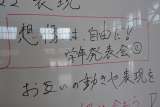 表現
想像は自由だ!!
学年発表会②
お互いの動きや表現を